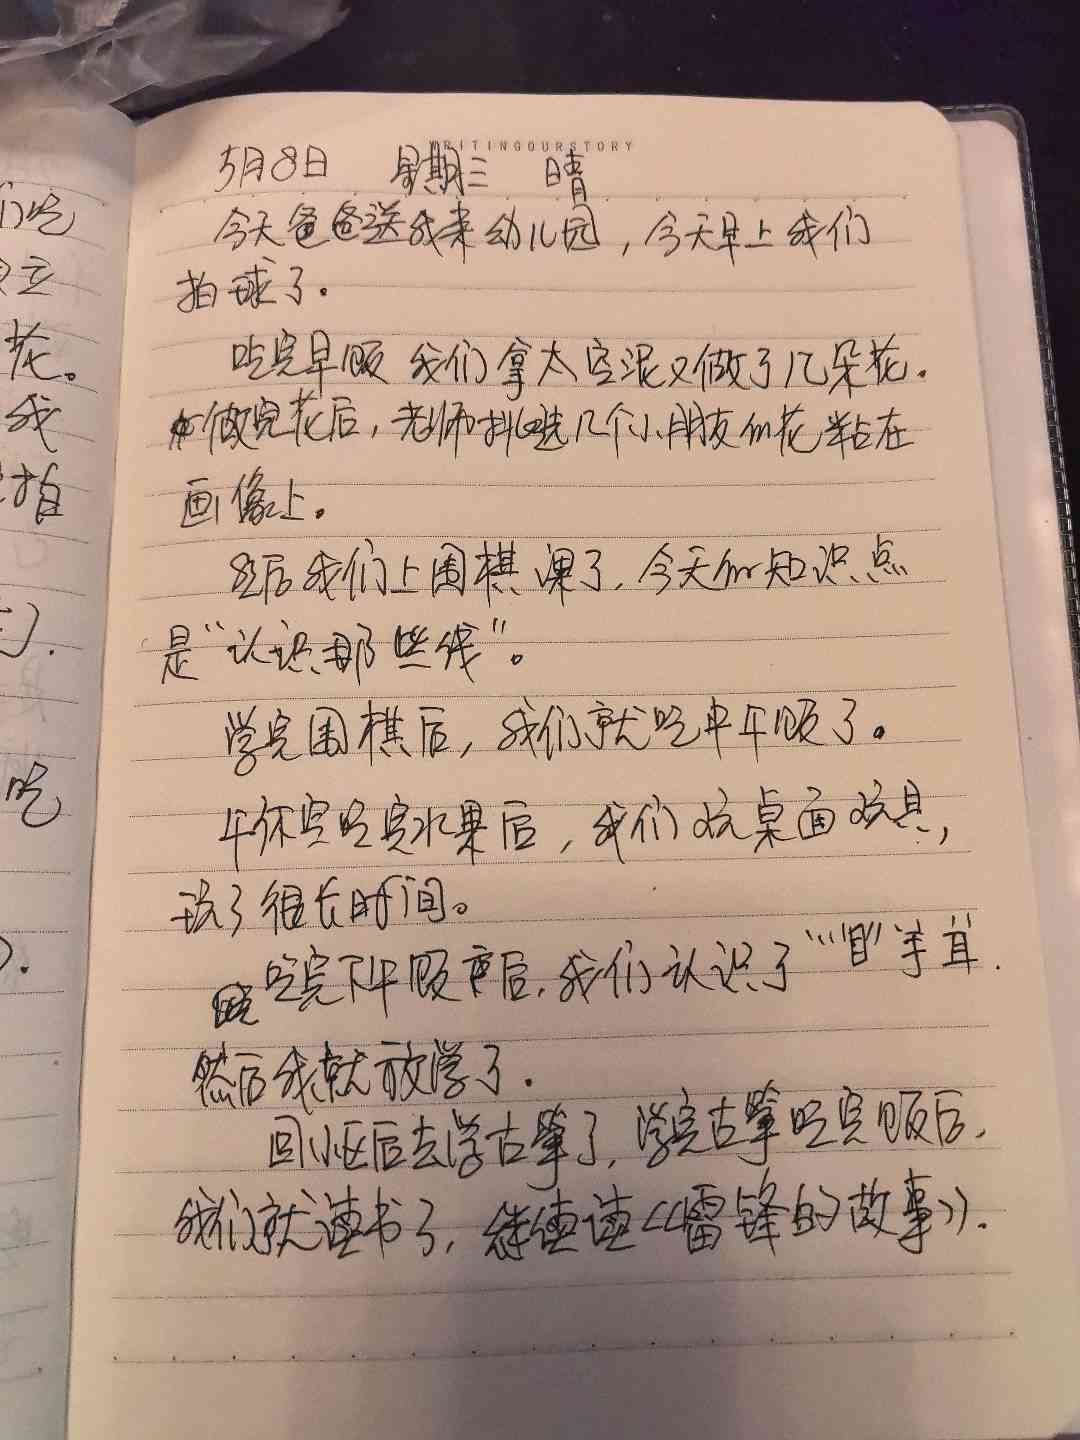 WRITINGOURSTORY
5月8日 星期三 晴
今天爸爸送我来幼儿园，今天早上我们
拍球了.
吃完早饭 我们拿太空泥又做了几朵花.
做完花后，老师挑选几个小朋友的花粘在
画像上。
然后我们上围棋课了，今天的知识点
是“认识那些线”。
学完围棋后，我们就吃中午饭了。
午休完吃完水果后，我们玩桌面玩具，
玩了很长时间。
吃完下午饭后，我们认识了“目”手耳.
然后我就放学了.
回小区后去学古筝了，学完古筝吃完饭后，
我们就读书了，继续读《雷锋的故事》.
们吃
立
花。
我
拍
吃